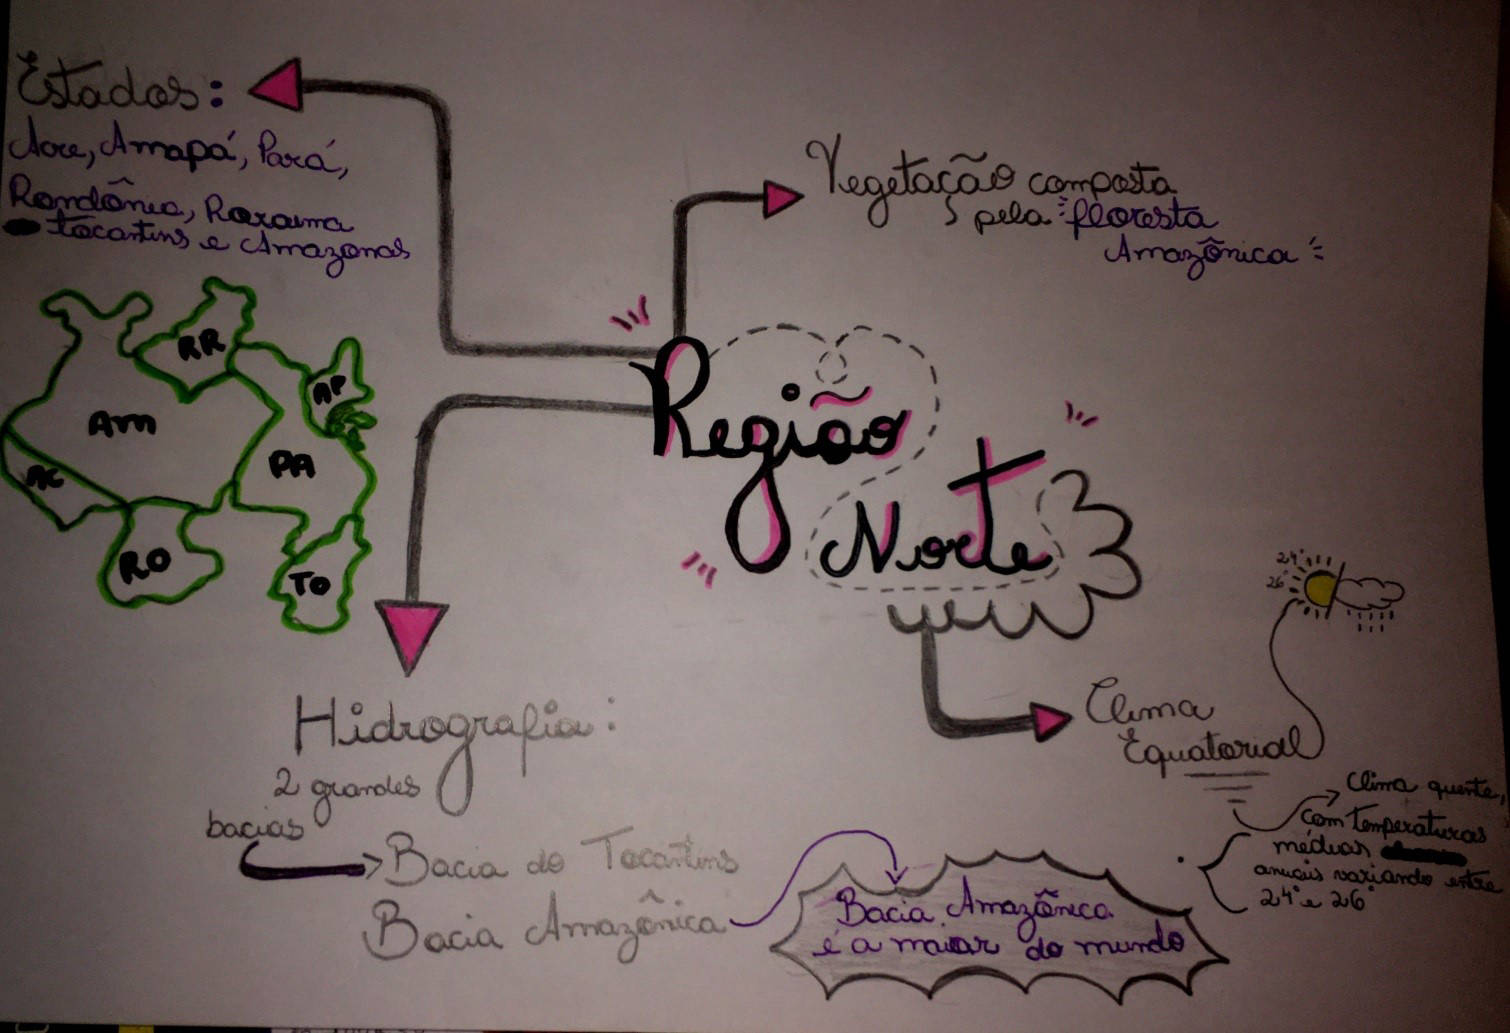 Estados:
Acre, Amapá, Pará,
Rondônia, Roraima
Tocantins e Amazonas
RR
AP
Am
PA
AC
RO
TO
Vegetação composta
pela floresta
Amazônica
Região
Norte
24°
26°
Clima
Equatorial
Clima quente,
com temperaturas
médias
anuais variando entre
24° e 26°
Hidrografia:
2 grandes
bacias
Bacia do Tocantins
Bacia Amazônica
Bacia Amazônica
é a maior do mundo